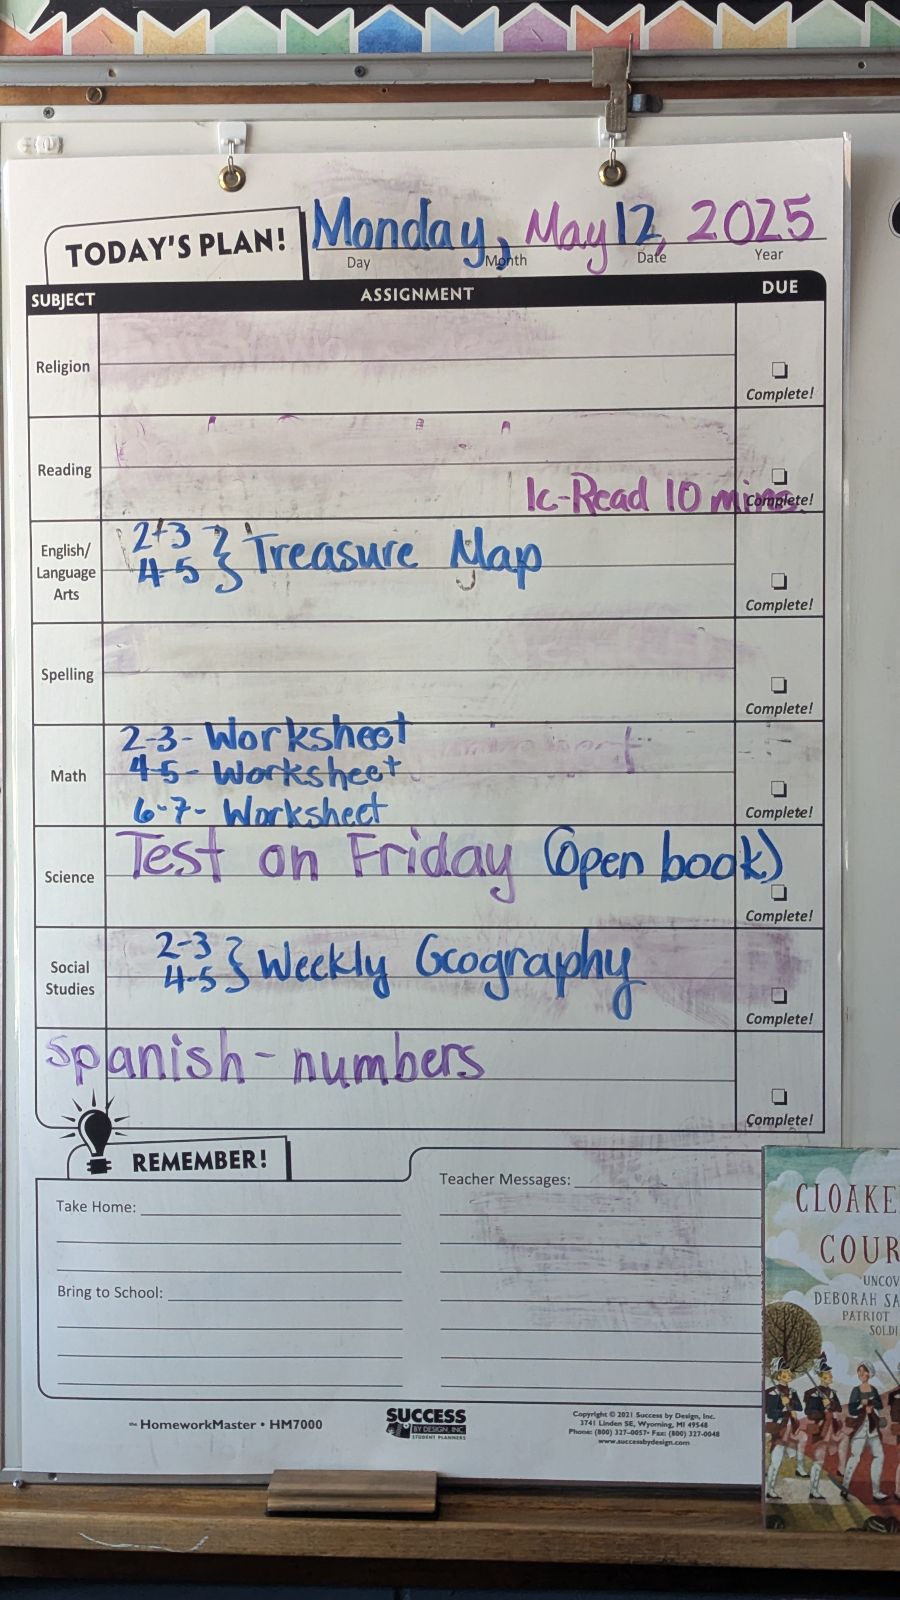 TODAY'S PLAN!
Monday, May 12, 2025
Day Month Date Year
SUBJECT ASSIGNMENT DUE
Religion
Complete!
Reading
1c-Read 10 mins
Complete!
English/
Language
Arts
2-3
4-5 } Treasure Map
Complete!
Spelling
Complete!
Math
2-3- Worksheet
4-5- Worksheet
6-7- Worksheet
Complete!
Science
Test on Friday (Open book)
Complete!
Social
Studies
2-3
4-5 } Weekly Geography
Complete!
Spanish- numbers
Complete!
REMEMBER!
Take Home:
Bring to School:
Teacher Messages:
the HomeworkMaster • HM7000
SUCCESS
BY DESIGN, INC.
STUDENT PLANNERS
Copyright © 2021 Success by Design, Inc.
3741 Linden SE, Wyoming, MI 49548
Phone: (800) 327-0057 • Fax: (800) 327-0048
www.successbydesign.com
CLOAKE
COUR
UNCOV
DEBORAH SA
PATRIOT
SOLDI